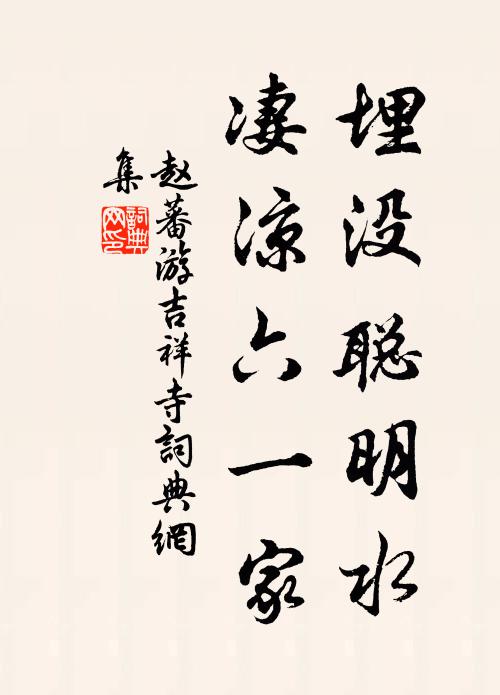 埋没聪明水
凄凉六一家
赵蕃游吉祥寺詞典網
集
詞典網印